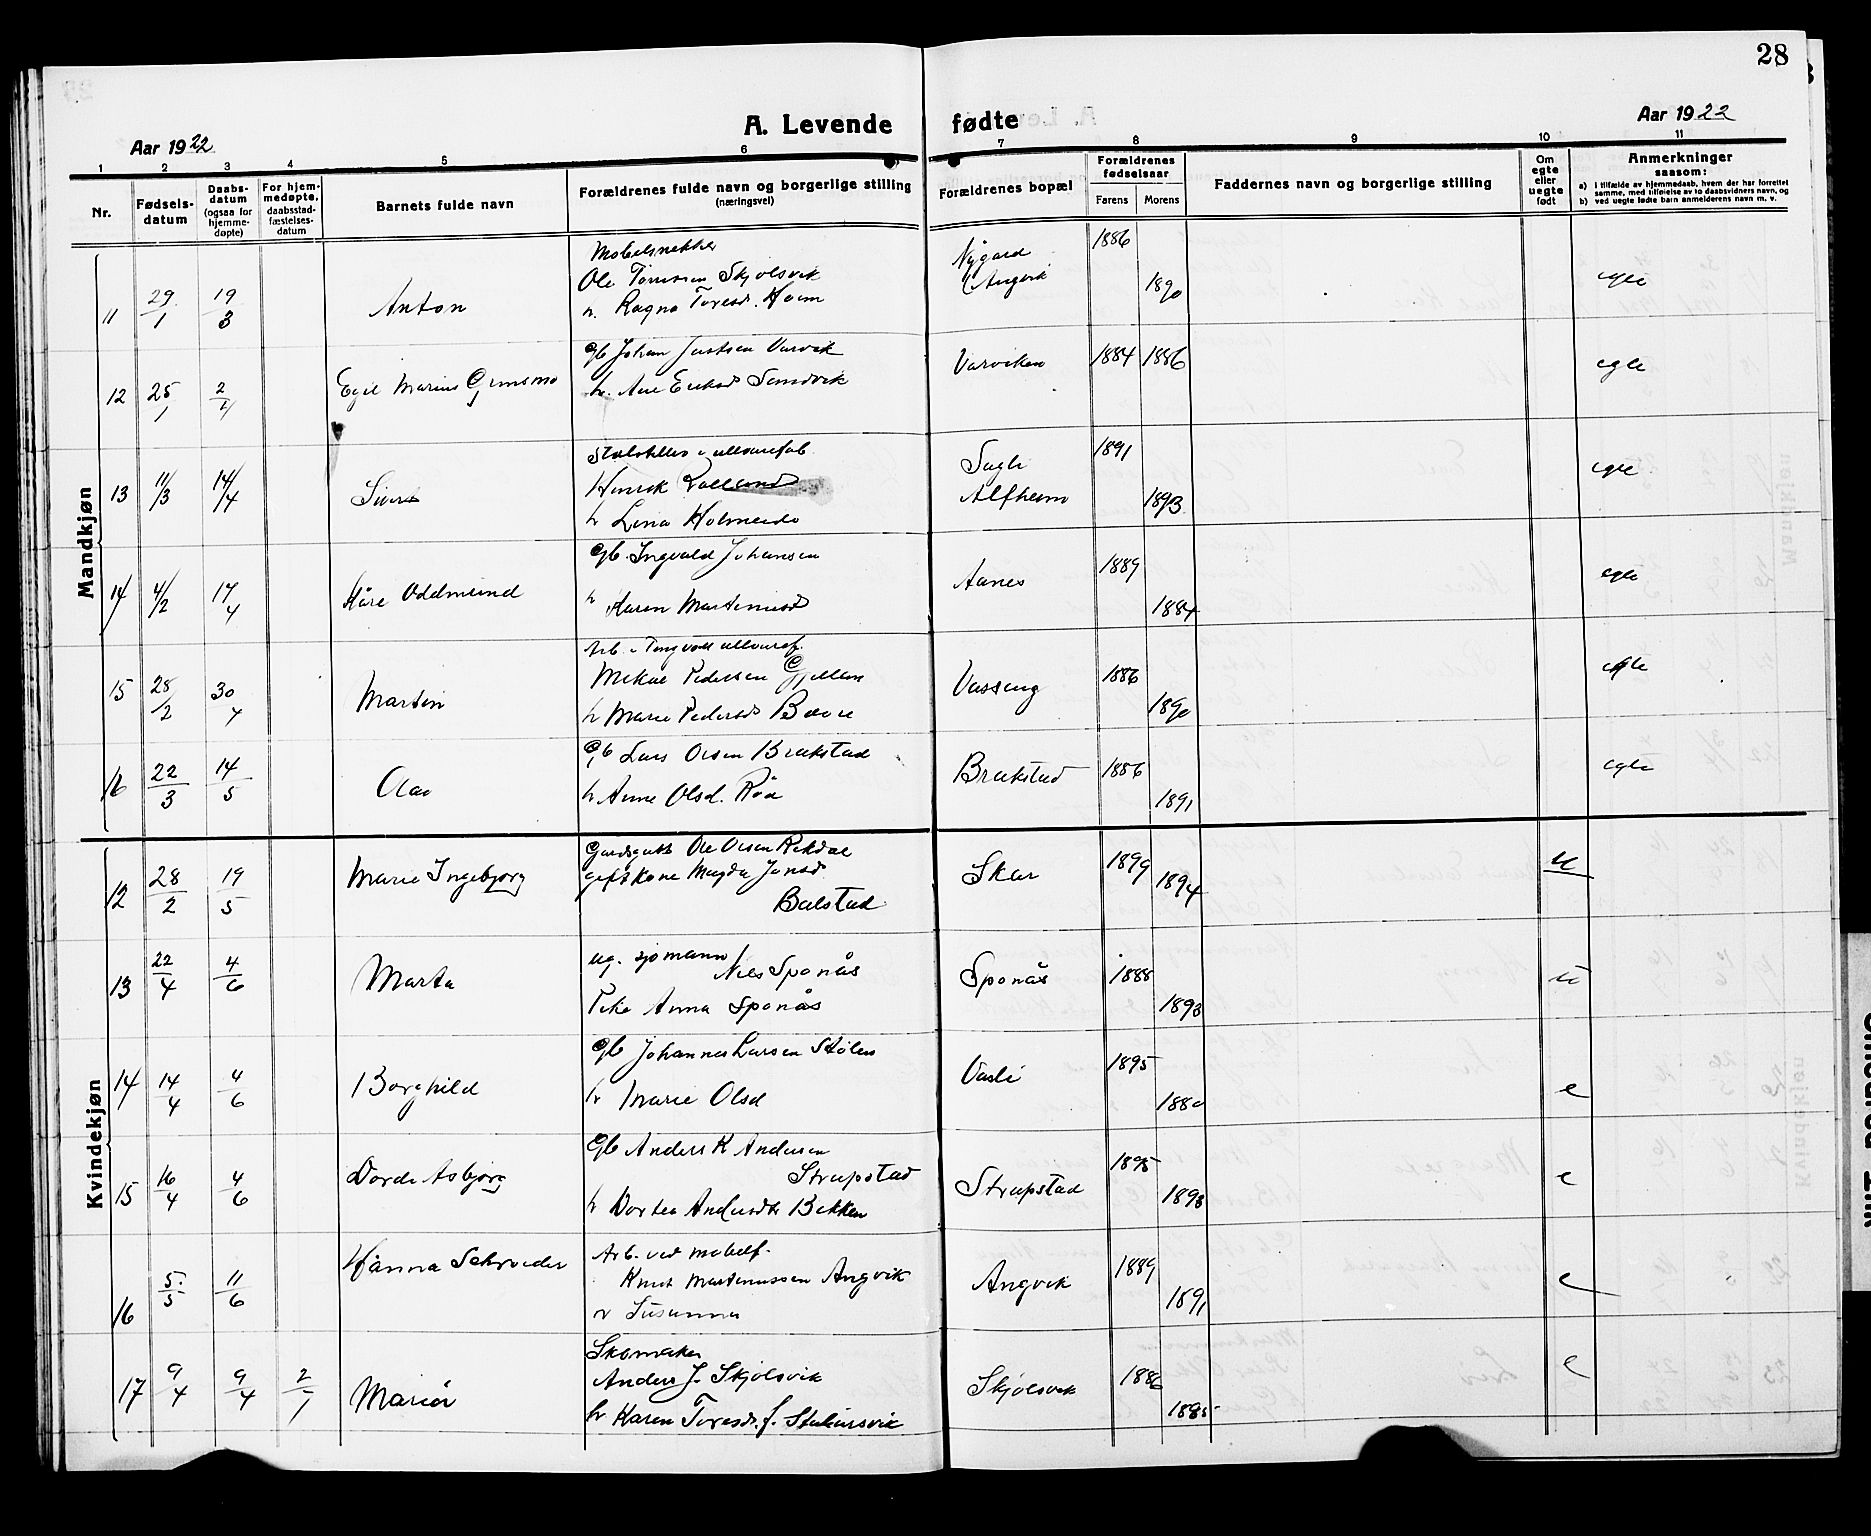 28
A. Levende fødte
Aar 1922
Aar 1922
1 2 3 4 5 6 7 8 9 10 11
Nr.
Fødsels-
datum
Daabs-
datum
(ogsaa for
hjemme-
døpte)
For hjem-
medøpte,
daabsstad-
fæstelses-
datum
Barnets fulde navn
Forældrenes fulde navn og borgerlige stilling
(næringsvei)
Forældrenes bopæl
Forældrenes
fødselsaar
Farens Morens
Faddernes navn og borgerlige stilling
Om
egte
eller
uegte
født
Anmerkninger
saasom:
a) i tilfælde av hjemmedaab, hvem der har forrettet
samme, med tilføielse av to daabsvidners navn, og
b) ved uegte fødte barn anmelderens navn m. v.
Mandkjøn
11 29/1 19/3 Anton
Møbelsnekker
Ole Tørrissen Skjølsvik
h. Ragna Toresd. Hoem
Nygard
Angvik
1886 1890 egte
12 25/1 2/4 Egil Marius Grimsmo
Gb Johan Justsen Varvik
h. Ane Eriksd Sandvik
Varviken 1884 1886 egte
13 11/3 14/4
Henrik
h Lina
Alfheim
1891 1893 egte
14 4/2 17/4 Kåre Oddmund
Gb. Ingvald Johansen
h Karen Martinusd
Aanes 1889 1884 egte
15 28/2 30/4 Martin
Arb. i Tingvoll
Mikal Pedersen Gjellan
h Marie Pedersd Bøvre
Vasseng 1886 1890 egte
16 22/3 14/5 Olav
Gb Lars Olsen Brakstad
h Anne Olsd. Röd
Brakstad 1886 1891 egte
Kvindekjøn
12 28/2 19/5 Marie Ingebjørg
Gardsgutt Ole Olsen Rekdal
gift kone Magda Jonsd
Balstad
Skar 1899 1894 u
13 22/4 4/6 Marta
ug. sjømann
Nils Sponås
Pike Anna Sponås
Sponås 1888 1893 u
14 14/4 4/6 Borghild
Gb Johannes Larsen Stølen
h Marie Olsd
Vasli 1895 e
15 16/4 4/6 Dorde Asbjørg
Gb Anders K Andersen
Strupstad
h Dortea Andersdtr Bakken
Strupstad 1895 1893 e
16 5/5 11/6 Hanna Schrøder
Arb. ved møbelf.
Knut Martinussen Angvik
h Susanna
Angvik 1889 1891 e
17 9/4 9/4 2/7
Skomaker
Anders J. Skjølsvik
h Karen Toresd. f.
Skjølsvik 1886 1885 e